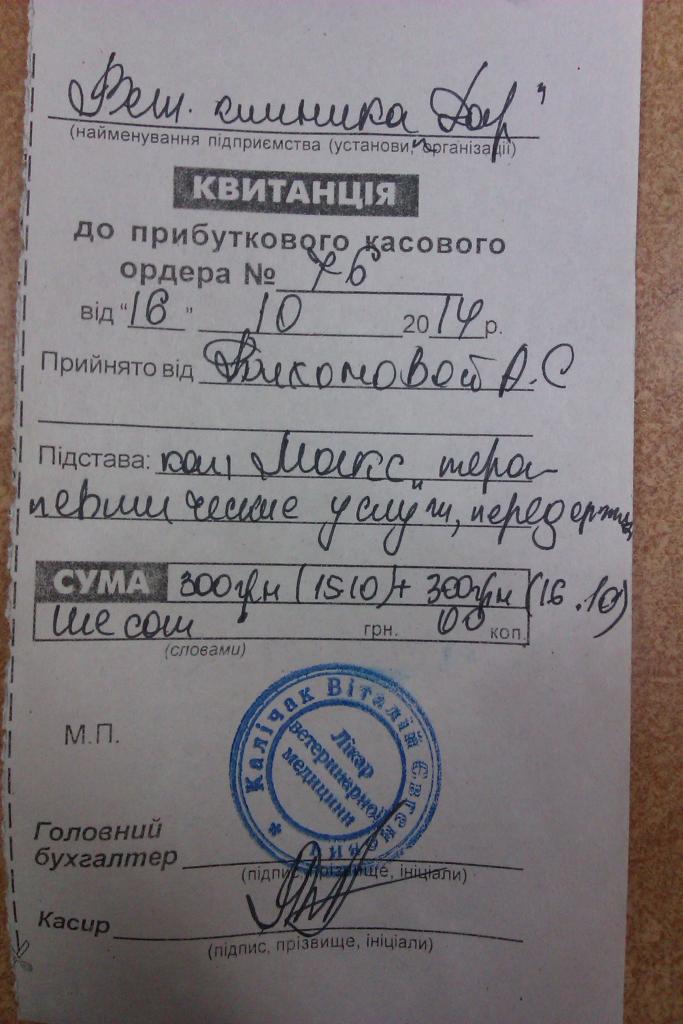 Вет. клиника Дар"
(найменування підприємства (установи, організації)
КВИТАНЦІЯ
до прибуткового касового
ордера № 76
від "16" 10 2014 р.
Прийнято від А.С
Підстава: кот Макс, тера-
певтические услуги, передержка
СУМА 300грн (1510)+ 300грн (16.10)
Шесот грн. 00 коп.
(словами)
Калічак Віталій Євгенович *
Лікар
ветеринарної
медицини
М.П.
Головний
бухгалтер
(підпис, прізвище, ініціали)
Касир
(підпис, прізвище, ініціали)